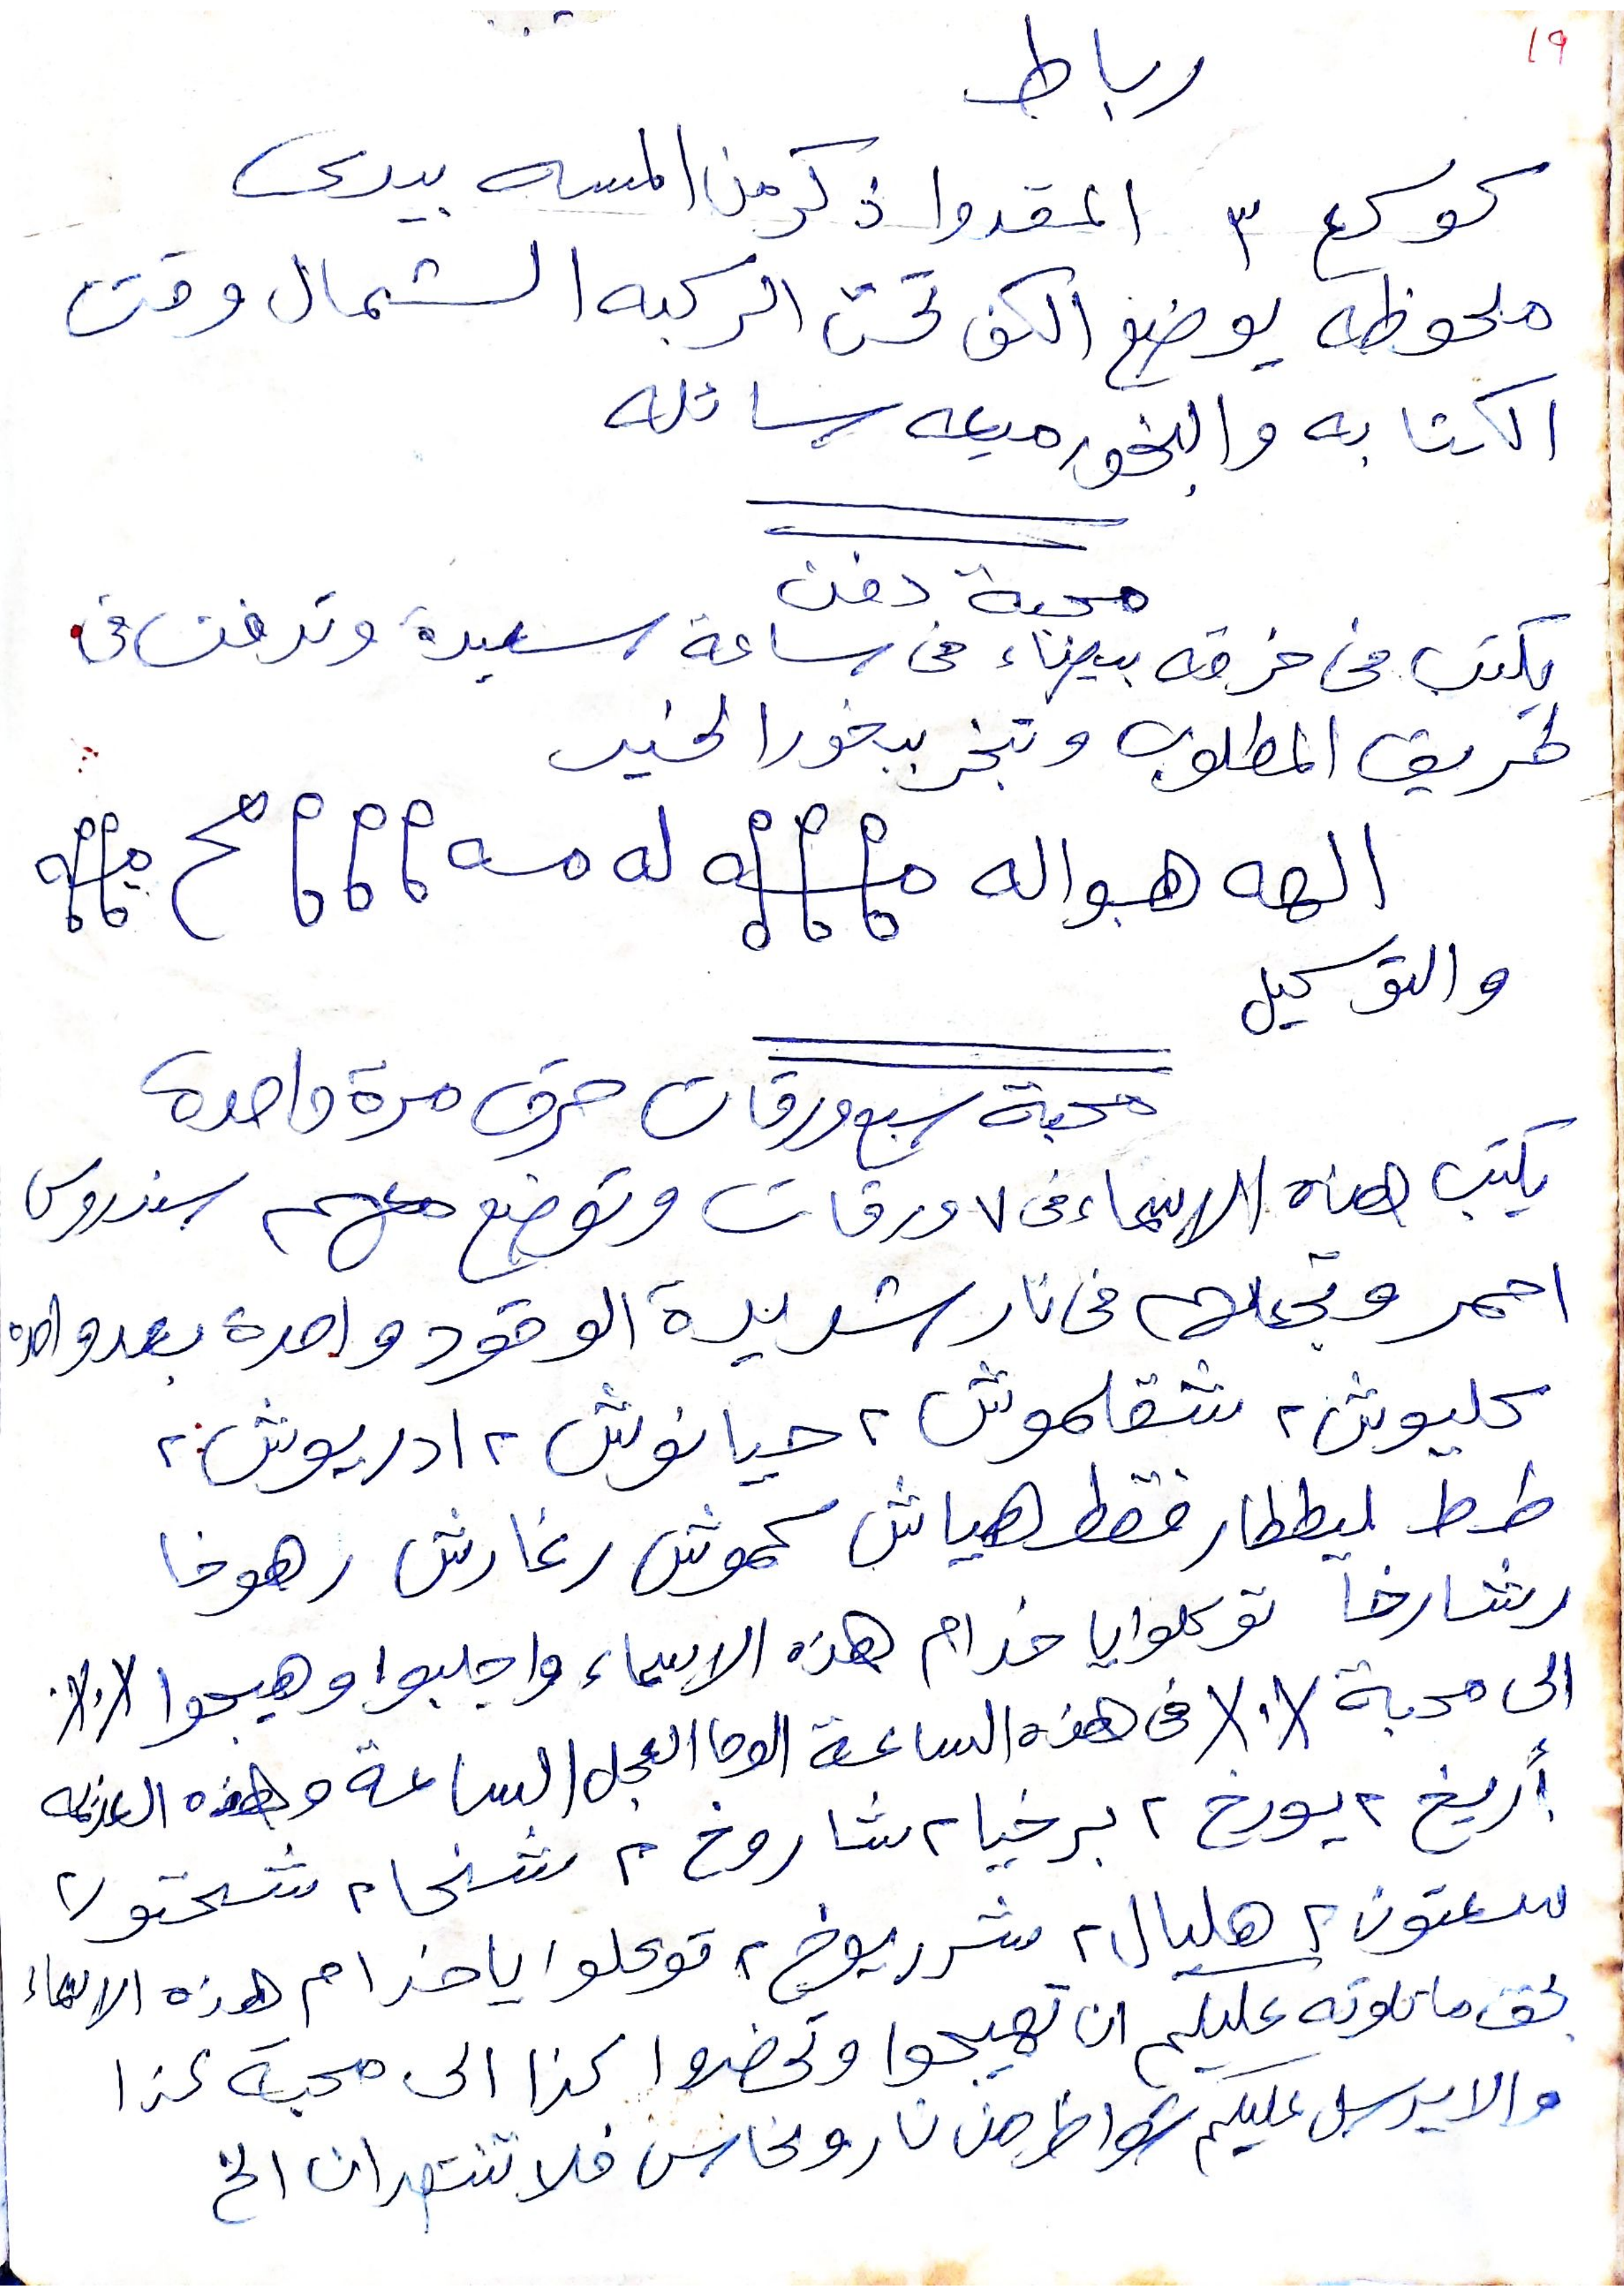 ١٩
رباط
كوكع ٣ اعقدوا ذكر من المسه بيدى
ملحوظه يوضع الكف تحت الركبه الشمال وقت
الكتابه والبخور ميعه سائله
محبة دفن
يكتب فى خرقه بيضاء فى ساعة سعيدة وتدفن فى
طريق المطلوب وتبخر ببخور الخير
الهه هواله له مسه
والتوكيل
محبة سبع ورقات حرق مرة واحدة
يكتب هذه الاسماء فى ٧ ورقات وتوضع معهم سندروس
احمر وتجعلهم فى نار شديدة الوقود واحدة بعد واحده
كليوش ٢ شقلموش ٢ حيانوش ٢ ادريوش ٢
طط ليططار فقط هياش كموش رغارش رهوخا
رشارخا توكلوا يا خدام هذه الاسماء واجلبوا وهيجوا
الى محبة فى هذه الساعة الوحا العجل الساعة وهذه العزيمه
أريخ ٢ يورخ ٢ برخيا ٢ شاروخ ٢ شنخا ٢ شختو ٢
سعتون ٢ هليال ٢ شرريوخ ٢ توكلوا يا خدام هذه الاسماء
بحق ما تلوته عليكم ان تهيجوا وتحضروا كذا الى محبة كذا
والا يرسل عليكم شواظ من نار ونحاس فلا تنتصران الخ